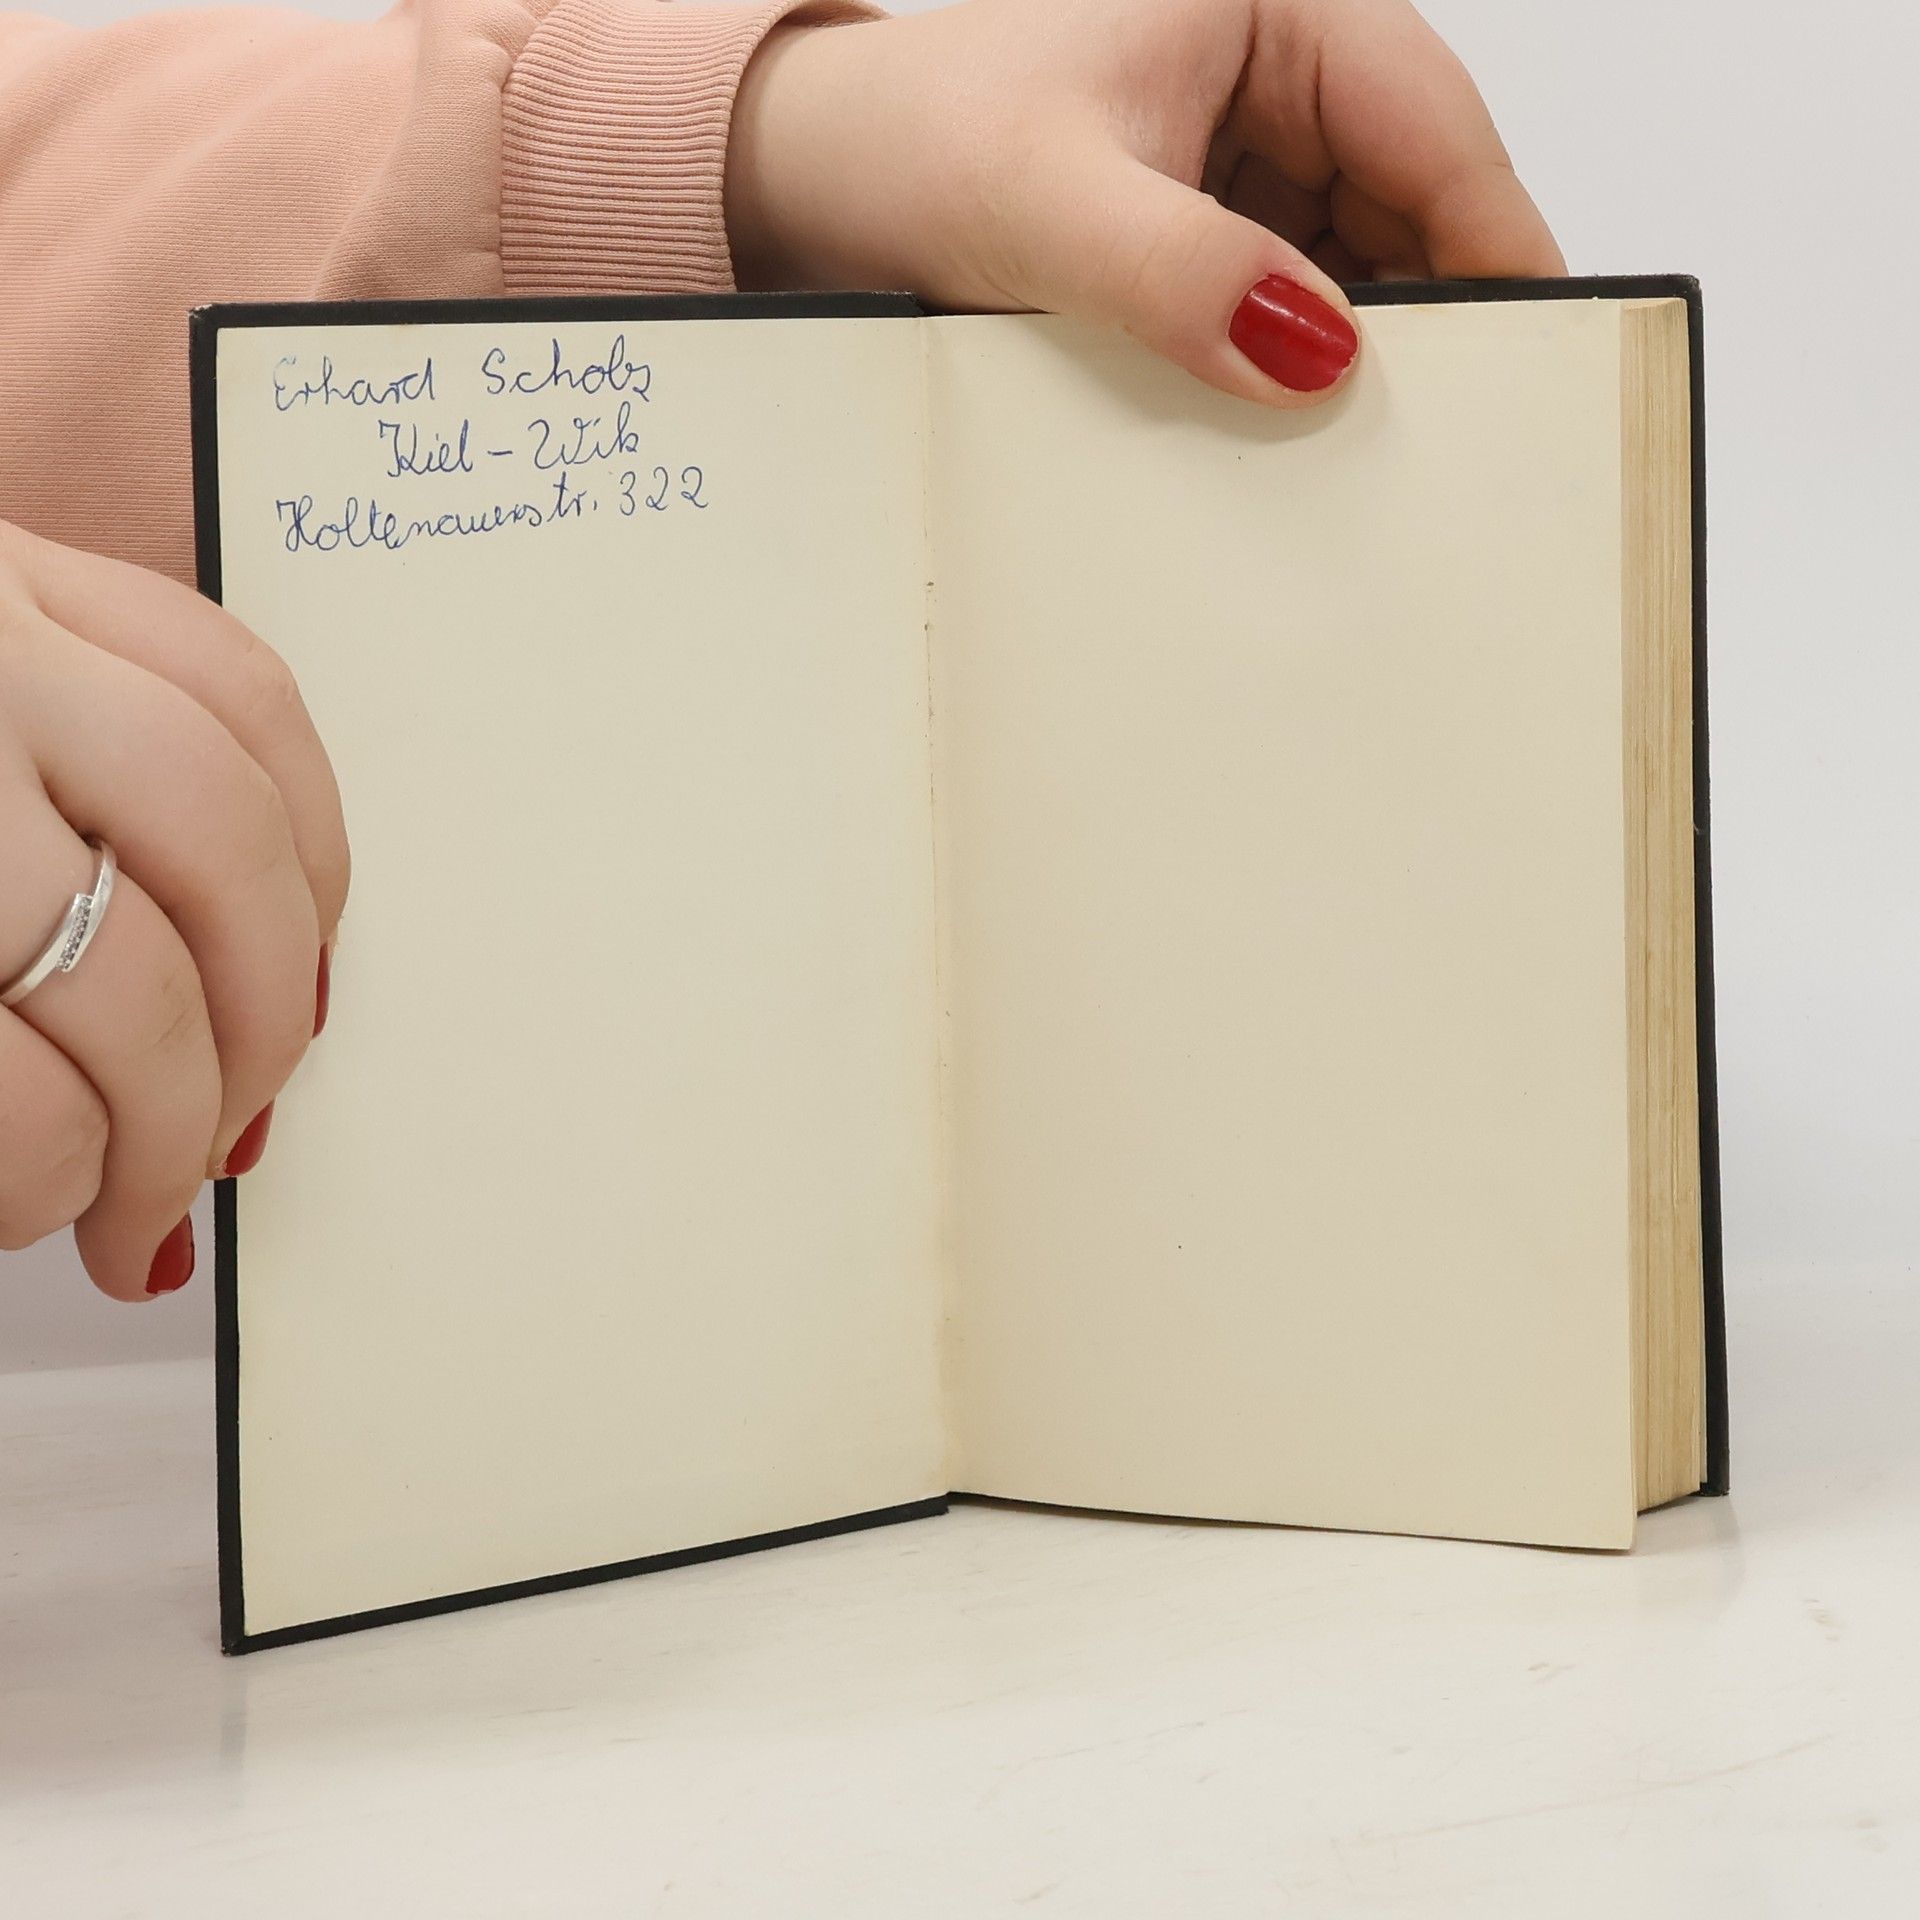 Erhard Scholz
Kiel - Wik
Holtenauerstr. 322